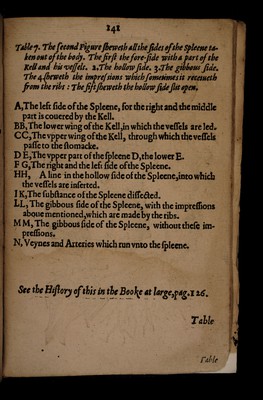 141
Table 7. The second Figure sheweth all the sides of the Spleene ta-
ken out of the body. The first the fore-side with a part of the
Kell and his vessels. 2. The hollow side. 3. The gibbous side.
The 4. sheweth the impressions which sometimes it receiueth
from the ribs : The fift sheweth the hollow side slit open.
A, The left side of the Spleene, for the right and the middle
part is couered by the Kell.
BB, The lower wing of the Kell, in which the vessels are led.
CC, The vpper wing of the Kell, through which the vessels
passe to the stomacke.
D E, The vpper part of the spleene D, the lower E.
F G, The right and the left side of the Spleene.
HH, A line in the hollow side of the Spleene, into which
the vessels are inserted.
I K, The substance of the Spleene dissected.
LL, The gibbous side of the Spleene, with the impressions
aboue mentioned, which are made by the ribs.
MM, The gibbous side of the Spleene, without these im-
pressions.
N, Veynes and Arteries which run vnto the spleene.
See the History of this in the Booke at large, pag. 126.
Table
Table